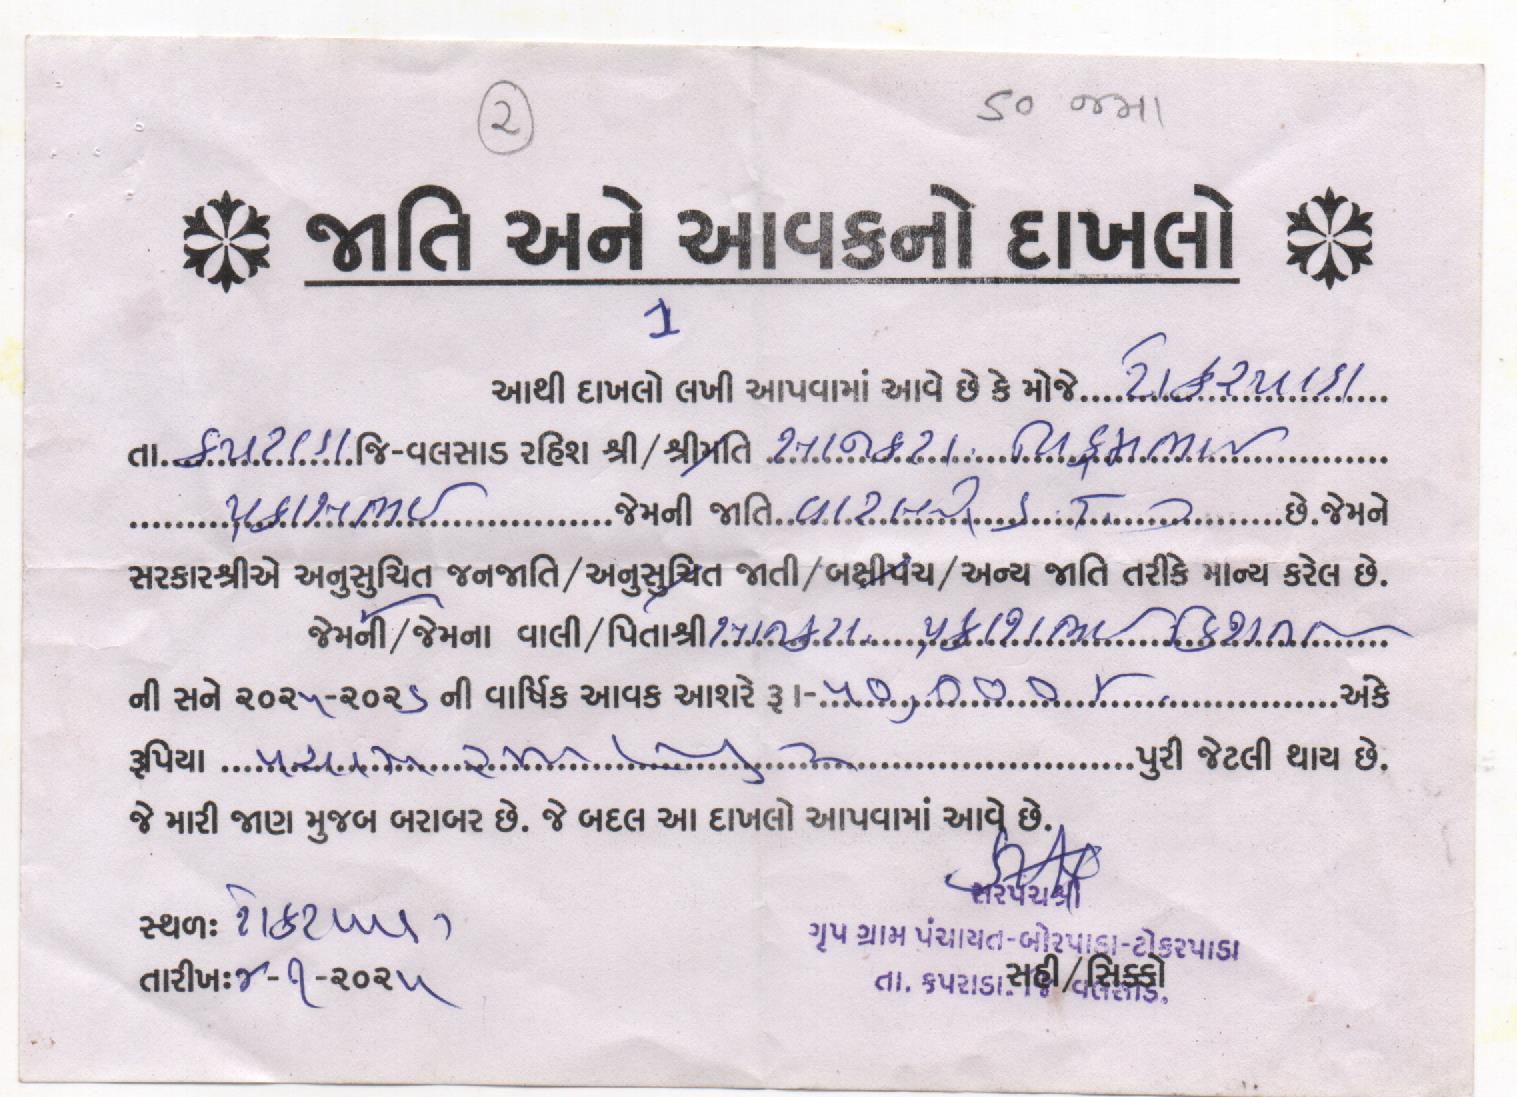 ૨
૬૦ જમા
જાતિ અને આવકનો દાખલો
1
આથી દાખલો લખી આપવામાં આવે છે કે મોજે ટોકરપાડા
તા. કપરાડા જિ-વલસાડ રહિશ શ્રી/શ્રીમતિ
પ્રકાશભાઈ જેમની જાતિ વારલી છે.જેમને
સરકારશ્રીએ અનુસુચિત જનજાતિ/અનુસુચિત જાતી/બક્ષીપંચ/અન્ય જાતિ તરીકે માન્ય કરેલ છે.
જેમની/જેમના વાલી/પિતાશ્રી પ્રકાશભાઈ
ની સને ૨૦૨૫-૨૦૨૬ ની વાર્ષિક આવક આશરે રૂ।.-૫૦,૦૦૦ અંકે
રૂપિયા પચાસ હજાર પુરી જેટલી થાય છે.
જે મારી જાણ મુજબ બરાબર છે. જે બદલ આ દાખલો આપવામાં આવે છે.
સરપંચશ્રી
સ્થળઃ ટોકરપાડા
ગૃપ ગ્રામ પંચાયત-બોરપાડા-ટોકરપાડા
તારીખઃ૪-૧-૨૦૨૫
સહી/સિક્કો
તા. કપરાડા. જિ વલસાડ.